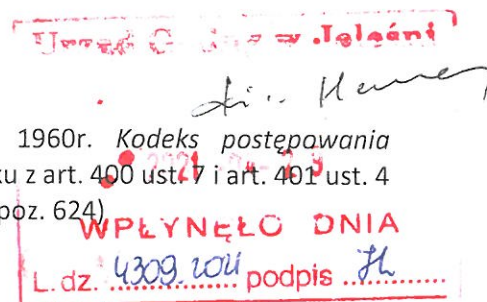 Urząd Gminy w Jeleśni
1960r. Kodeks postępowania
ku z art. 400 ust. 7 i art. 401 ust. 4
poz. 624)
WPŁYNĘŁO DNIA
L. dz. 4309.2021 podpis